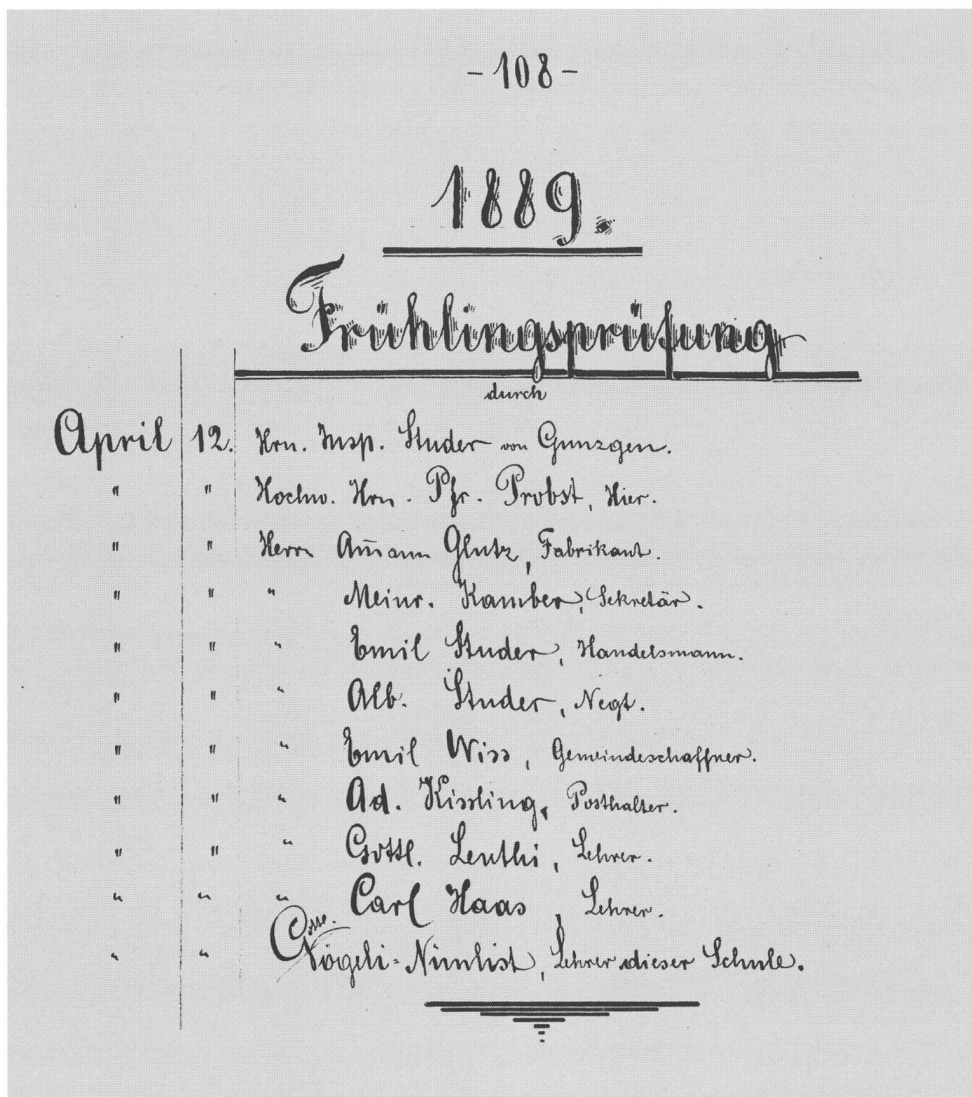 - 108 -
1889.
Frühlingsprüfung
durch
April 12. Hrn. Insp. Studer von Gunzgen.
" " Hochw. Hrn. Pfr. Probst, Hier.
" " Herrn Am̄ann Glutz, Fabrikant.
" " " Meinr. Kamber, Sekretär.
" " " Emil Studer, Handelsmann.
" " " Alb. Studer, Negt.
" " " Emil Wiss, Gemeindeschaffner.
" " " Ad. Kissling, Posthalter.
" " " Gottl. Leuthi, Lehrer.
" " " Carl Haas, Lehrer.
" " Nögeli-Nünlist, Lehrer dieser Schule.